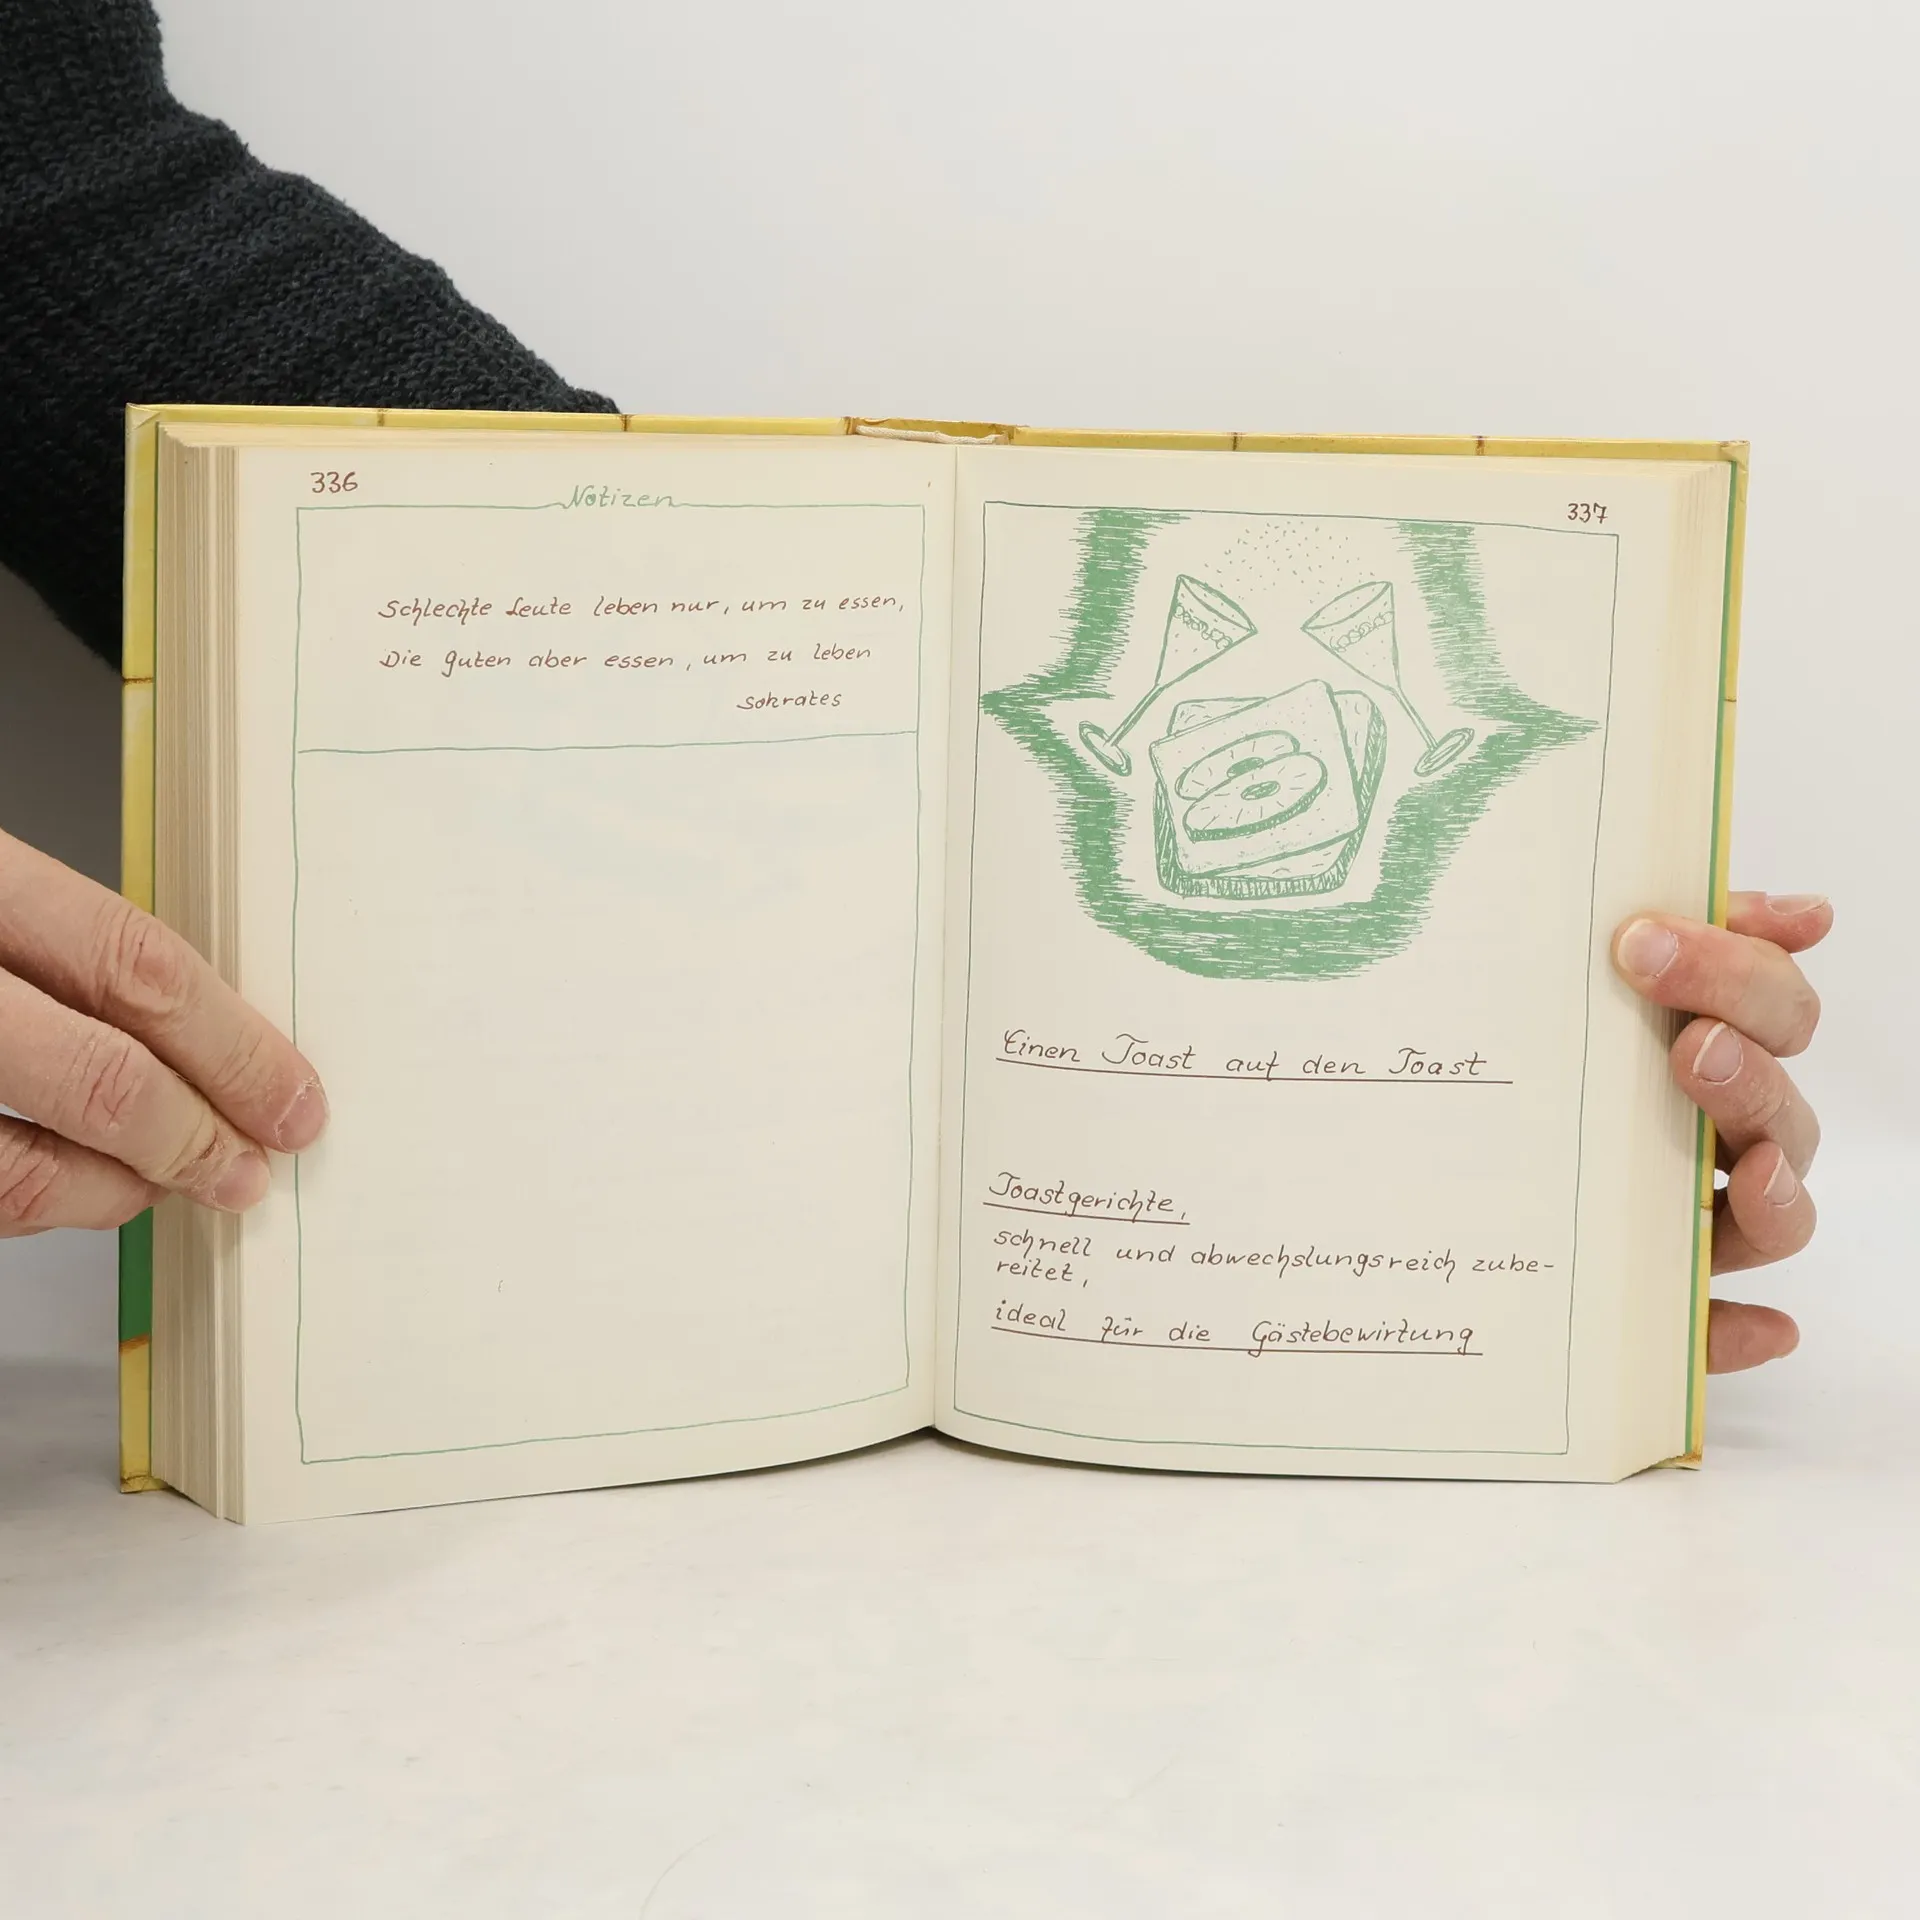 336
Notizen
Schlechte Leute leben nur, um zu essen,
Die guten aber essen, um zu leben
Sokrates
337
Einen Toast auf den Toast
Toastgerichte,
schnell und abwechslungsreich zube-
reitet,
ideal für die Gästebewirtung